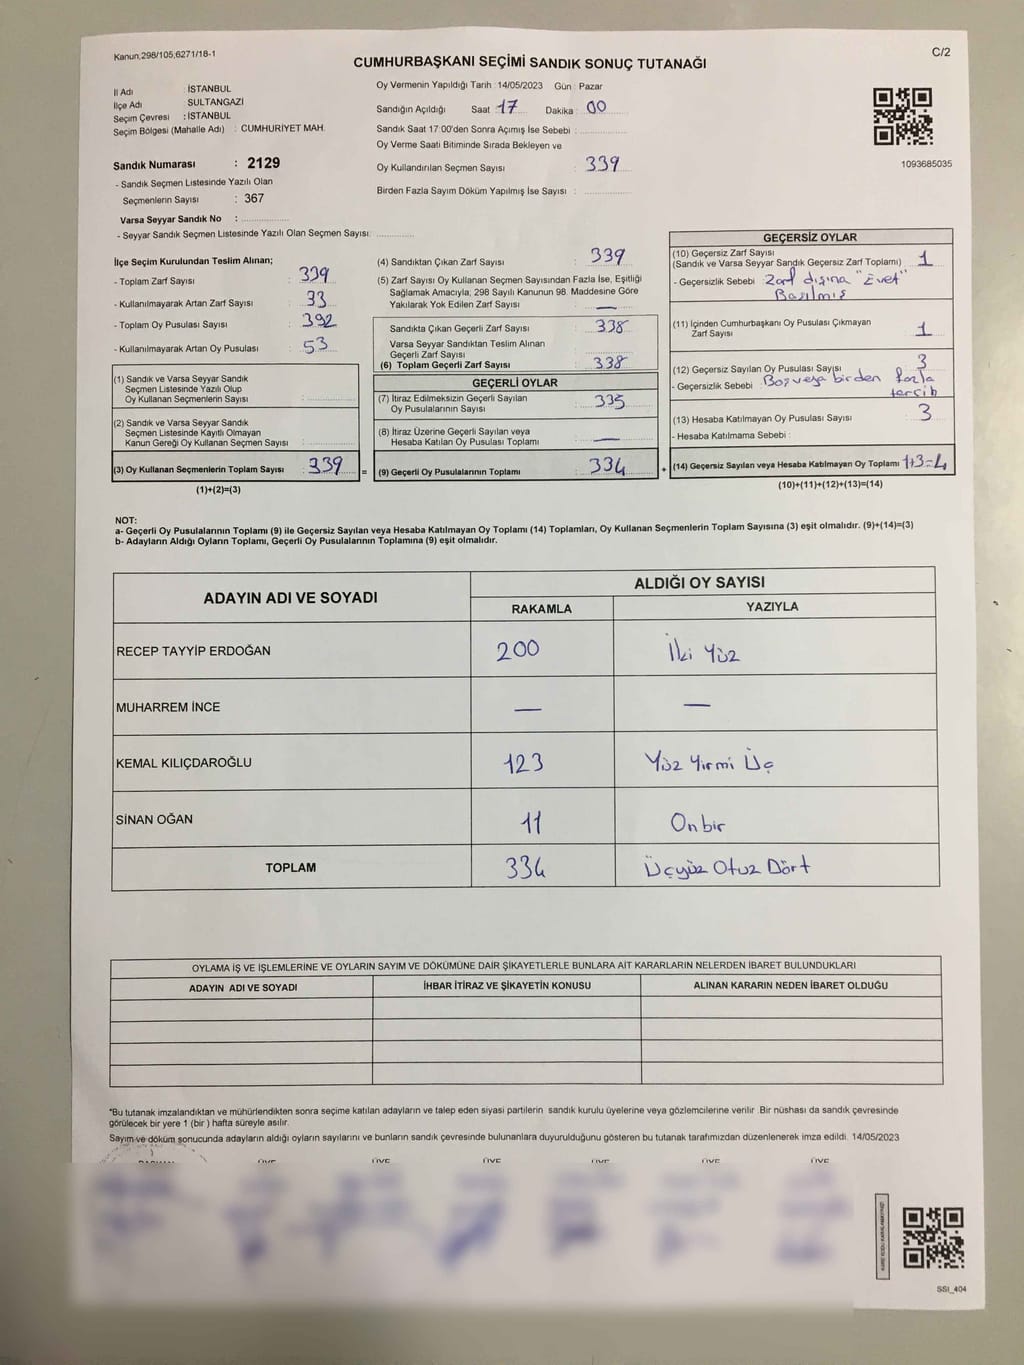 Kanun,298/105,6271/18-1
C/2
CUMHURBAŞKANI SEÇİMİ SANDIK SONUÇ TUTANAĞI
İl Adı : İSTANBUL
İlçe Adı SULTANGAZİ
Seçim Çevresi : İSTANBUL
Seçim Bölgesi (Mahalle Adı) : CUMHURİYET MAH.
Sandık Numarası : 2129
- Sandık Seçmen Listesinde Yazılı Olan
Seçmenlerin Sayısı : 367
Varsa Seyyar Sandık No :
- Seyyar Sandık Seçmen Listesinde Yazılı Olan Seçmen Sayısı:
Oy Vermenin Yapıldığı Tarih :14/05/2023 Gün : Pazar
Sandığın Açıldığı Saat 17 Dakika : 00
Sandık Saat 17:00'den Sonra Açımış İse Sebebi :
Oy Verme Saati Bitiminde Sırada Bekleyen ve
Oy Kullandırılan Seçmen Sayısı : 339
Birden Fazla Sayım Döküm Yapılmış İse Sayısı :
1093685035
İlçe Seçim Kurulundan Teslim Alınan;
- Toplam Zarf Sayısı : 339
- Kullanılmayarak Artan Zarf Sayısı : 33
- Toplam Oy Pusulası Sayısı : 392
- Kullanılmayarak Artan Oy Pusulası : 53
(1) Sandık ve Varsa Seyyar Sandık
Seçmen Listesinde Yazılı Olup
Oy Kullanan Seçmenlerin Sayısı :
(2) Sandık ve Varsa Seyyar Sandık
Seçmen Listesinde Kayıtlı Olmayan
Kanun Gereği Oy Kullanan Seçmen Sayısı :
(3) Oy Kullanan Seçmenlerin Toplam Sayısı : 339 =
(1)+(2)=(3)
(4) Sandıktan Çıkan Zarf Sayısı : 339
(5) Zarf Sayısı Oy Kullanan Seçmen Sayısından Fazla İse, Eşitliği
Sağlamak Amacıyla; 298 Sayılı Kanunun 98. Maddesine Göre
Yakılarak Yok Edilen Zarf Sayısı : —
Sandıkta Çıkan Geçerli Zarf Sayısı : 338
Varsa Seyyar Sandıktan Teslim Alınan
Geçerli Zarf Sayısı
(6) Toplam Geçerli Zarf Sayısı : 338
GEÇERLİ OYLAR
(7) İtiraz Edilmeksizin Geçerli Sayılan
Oy Pusulalarının Sayısı : 335
(8) İtiraz Üzerine Geçerli Sayılan veya
Hesaba Katılan Oy Pusulası Toplamı : —
(9) Geçerli Oy Pusulalarının Toplamı : 334 +
GEÇERSİZ OYLAR
(10) Geçersiz Zarf Sayısı
(Sandık ve Varsa Seyyar Sandık Geçersiz Zarf Toplamı) : 1
- Geçersizlik Sebebi : Zarf dışına "Evet"
Basılmış
(11) İçinden Cumhurbaşkanı Oy Pusulası Çıkmayan
Zarf Sayısı : 1
(12) Geçersiz Sayılan Oy Pusulası Sayısı : 3
- Geçersizlik Sebebi : Boş veya birden fazla
tercih
(13) Hesaba Katılmayan Oy Pusulası Sayısı : 3
- Hesaba Katılmama Sebebi :
(14) Geçersiz Sayılan veya Hesaba Katılmayan Oy Toplamı : 1+3=4
(10)+(11)+(12)+(13)=(14)
NOT:
a- Geçerli Oy Pusulalarının Toplamı (9) ile Geçersiz Sayılan veya Hesaba Katılmayan Oy Toplamı (14) Toplamları, Oy Kullanan Seçmenlerin Toplam Sayısına (3) eşit olmalıdır. (9)+(14)=(3)
b- Adayların Aldığı Oyların Toplamı, Geçerli Oy Pusulalarının Toplamına (9) eşit olmalıdır.
ADAYIN ADI VE SOYADI
ALDIĞI OY SAYISI
RAKAMLA YAZIYLA
RECEP TAYYİP ERDOĞAN 200 İki Yüz
MUHARREM İNCE — —
KEMAL KILIÇDAROĞLU 123 Yüz Yirmi Üç
SİNAN OĞAN 11 On bir
TOPLAM 334 Üçyüz Otuz Dört
OYLAMA İŞ VE İŞLEMLERİNE VE OYLARIN SAYIM VE DÖKÜMÜNE DAİR ŞİKAYETLERLE BUNLARA AİT KARARLARIN NELERDEN İBARET BULUNDUKLARI
ADAYIN ADI VE SOYADI İHBAR İTİRAZ VE ŞİKAYETİN KONUSU ALINAN KARARIN NEDEN İBARET OLDUĞU
*Bu tutanak imzalandıktan ve mühürlendikten sonra seçime katılan adayların ve talep eden siyasi partilerin sandık kurulu üyelerine veya gözlemcilerine verilir .Bir nüshası da sandık çevresinde
görülecek bir yere 1 (bir ) hafta süreyle asılır.
Sayım ve döküm sonucunda adayların aldığı oyların sayılarını ve bunların sandık çevresinde bulunanlara duyurulduğunu gösteren bu tutanak tarafımızdan düzenlenerek imza edildi. 14/05/2023
BAŞKAN ÜYE ÜYE ÜYE ÜYE ÜYE ÜYE
SSI_404